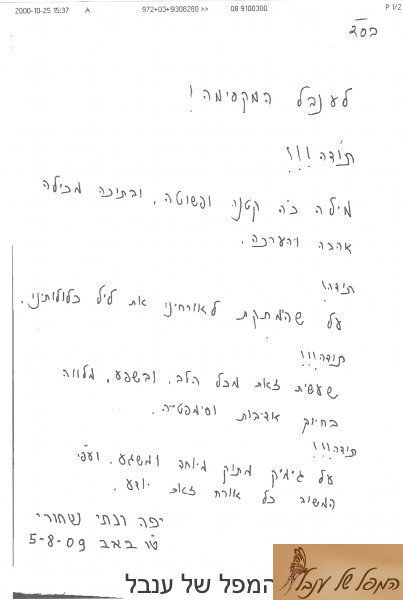 2000-10-25 15:37 A 972+03+9308280 >> 08 9100300 P 1/2
בס"ד
לענבל המקסימה!
תודה!!!
מילה כ"כ קטנה ופשוטה, ובתוכה מכילה
אהבה והערכה.
תודה!
על שהמתקת לאורחינו את ליל כלולותינו.
תודה!!!
שעשית זאת מכל הלב, ובשפע, מלווה
בחיוך אדיבות וסימפטיה.
תודה!!!
על גימיק מתוק מיוחד ומשגע.
המשיב כל אורח זאת יודע.
יפה ונתי נשחורי
ט"ו באב 5-8-09
המפל של ענבל
המפל של ענבל